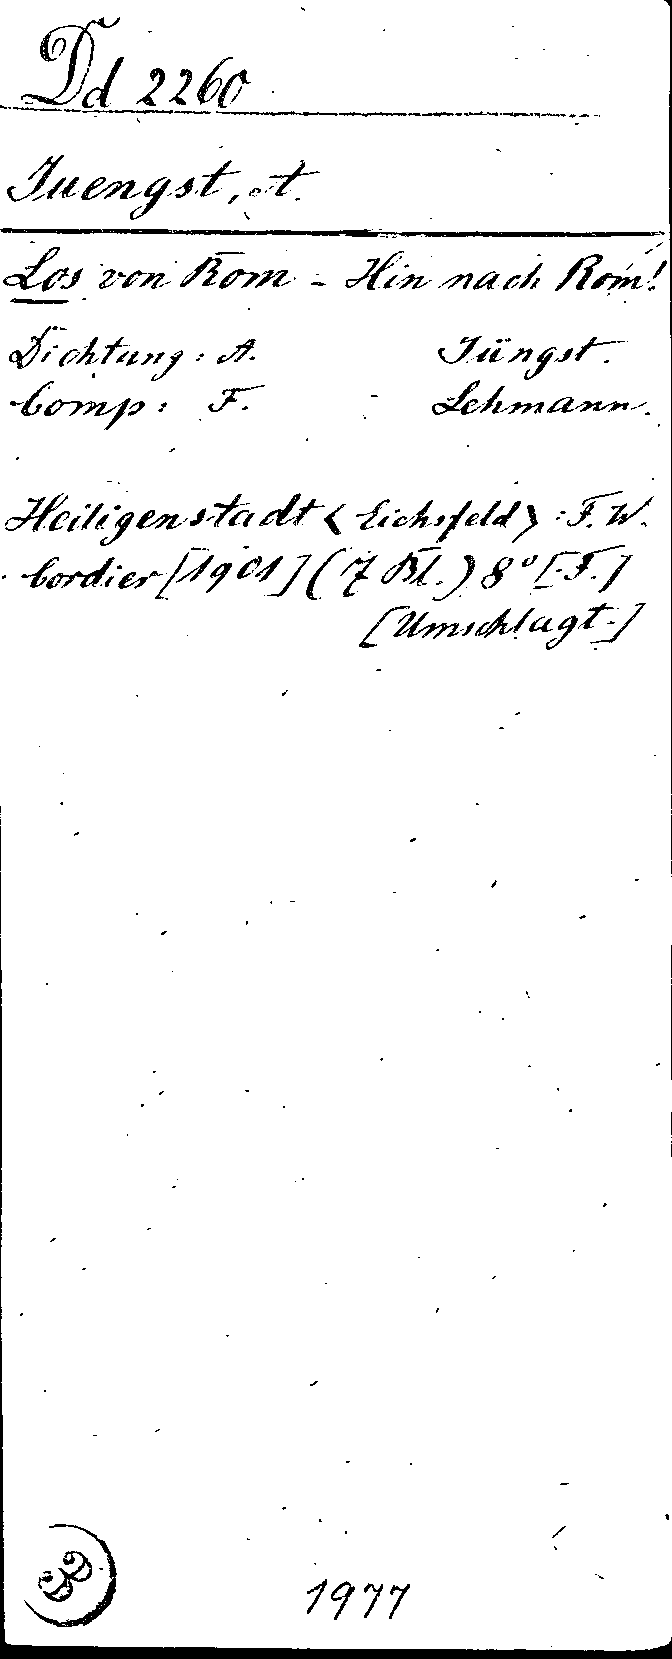 Dd 2260
Juengst, A.
Los von Rom - Hin nach Rom!
Dichtung: A. Jüngst.
Comp: F. Lehmann.
Heiligenstadt <Eichsfeld>: F. W.
Cordier [1901] (7 Bl.) 8° [F.]
[Umschlagt.]
1977